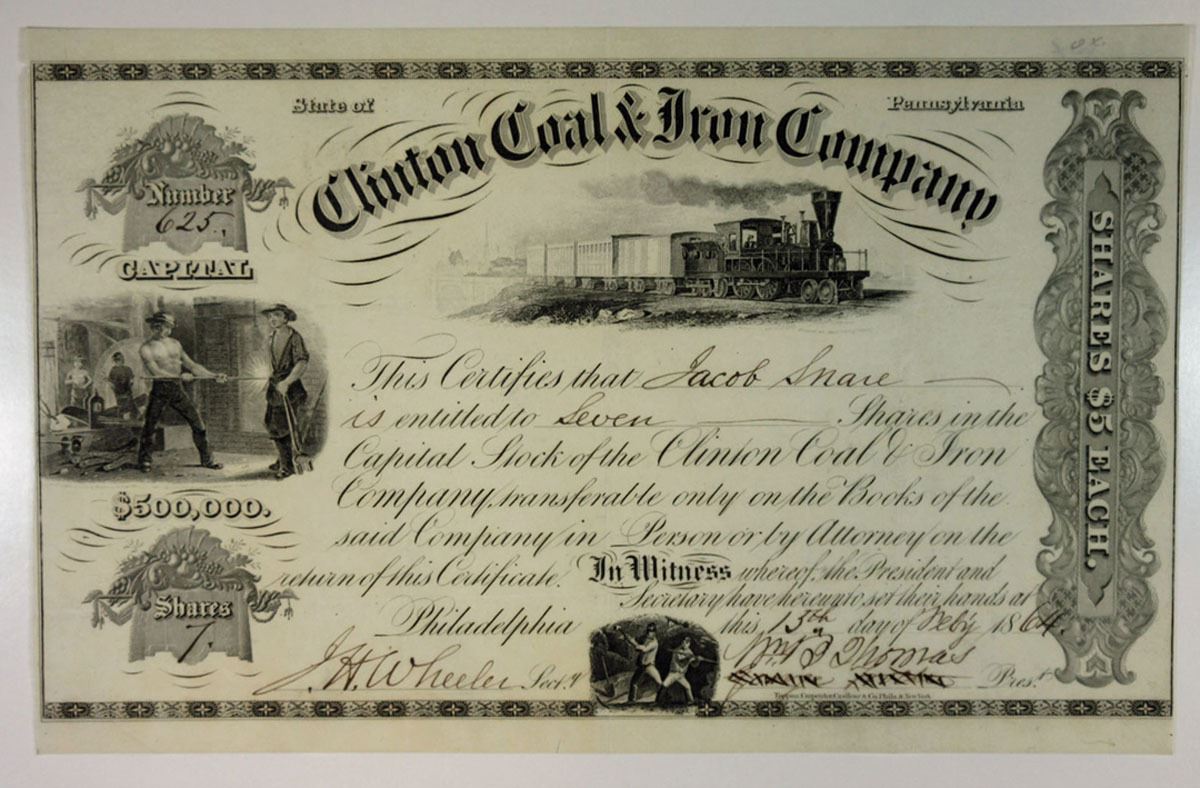 State of
Pennsylvania
Clinton Coal & Iron Company
Number
625.
CAPITAL
$500,000.
Shares
7.
SHARES $5 EACH.
This Certifies that Jacob Snare
is entitled to Seven Shares in the
Capital Stock of the Clinton Coal & Iron
Company, transferable only on the Books of the
said Company in Person or by Attorney on the
return of this Certificate. In Witness whereof, the President and
Secretary have hereunto set their hands at
Philadelphia this 15th day of Feby 1864.
J. H. Wheeler Secty
Wm B Thomas
Prest
Toppan, Carpenter, Casilear & Co. Phila. & New York